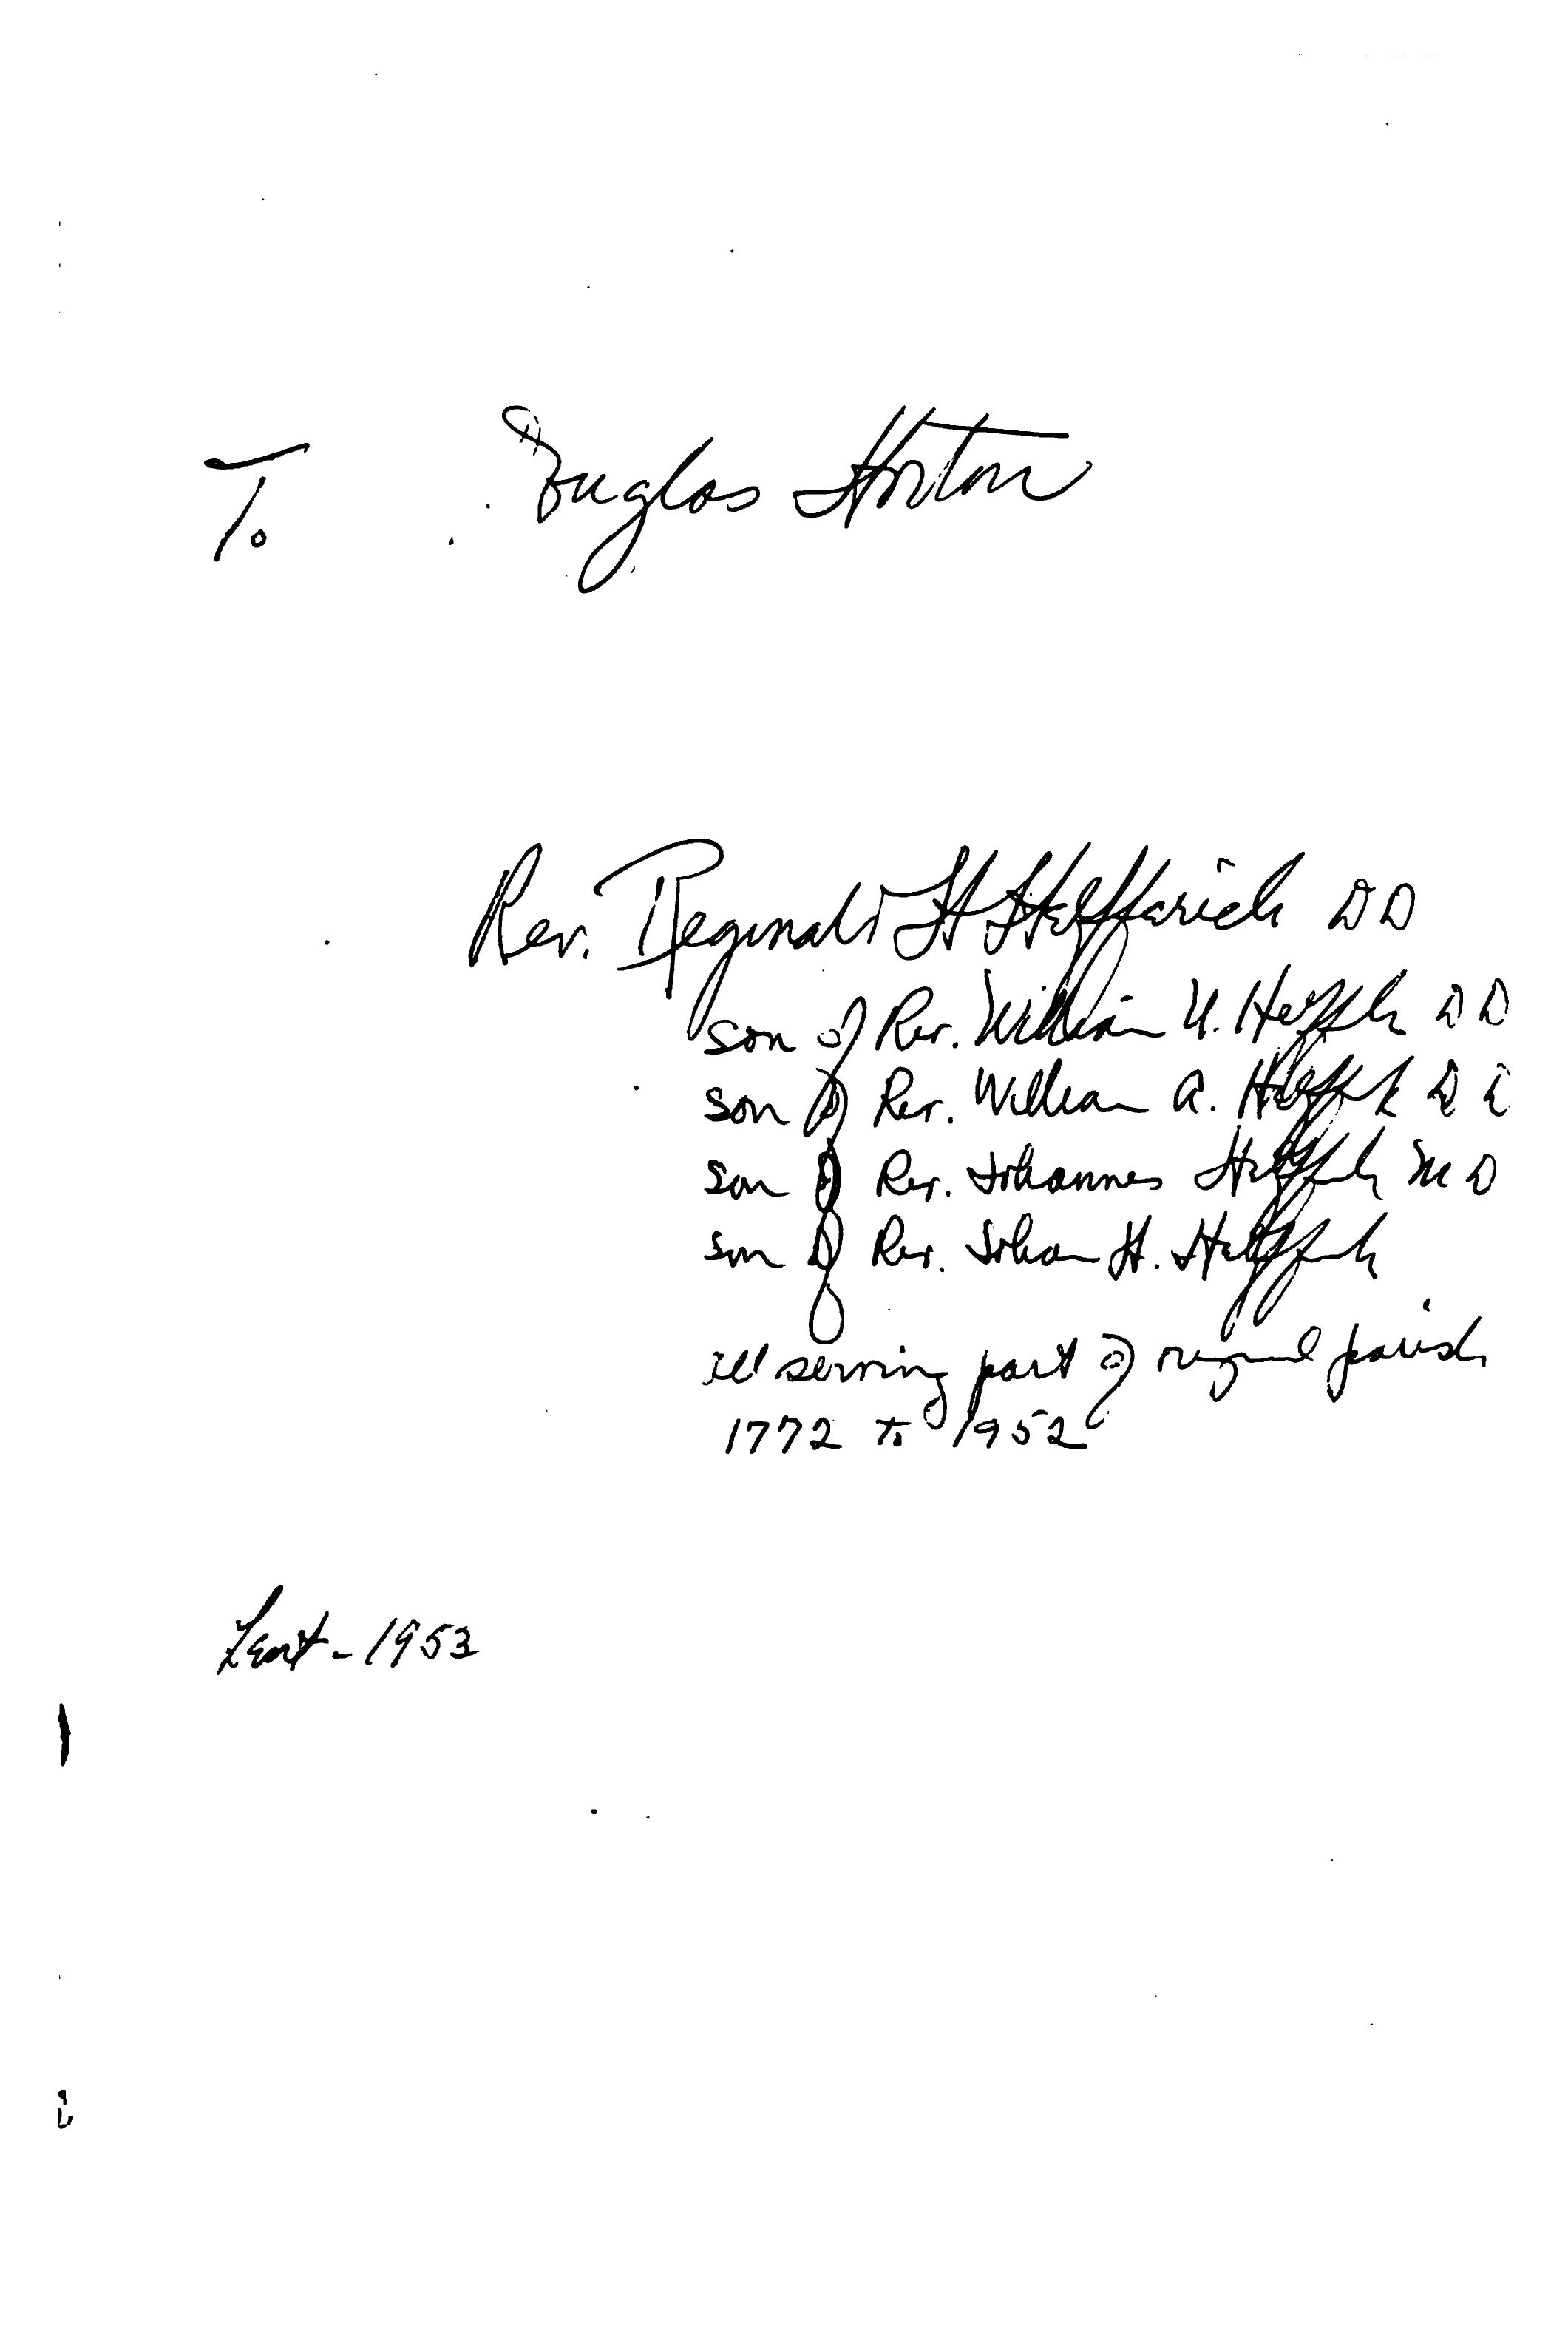 To Douglas Horton
Rev. Reginald H Helffrich DD
son of Rev. William U. Helffrich DD
son of Rev. William A. Helffrich DD
son of Rev. Johannes Helffrich MD
son of Rev. Johan H. Helffrich
all serving part of original parish
1772 to 1952
Lent - 1953